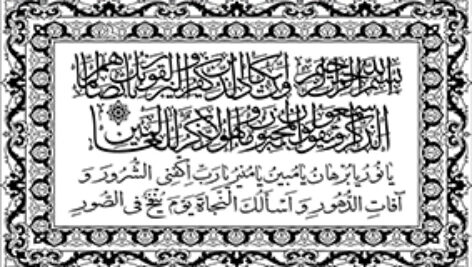 بسم الله الرحمن الرحيم وان يكاد الذين كفروا ليزلقونك بابصارهم لما
سمعوا الذكر ويقولون انه لمجنون وما هو الا ذكر للعالمين
يا نور يا برهان يا مبين يا منير يا رب اكفني الشرور و
آفات الدهور و أسألك النجاة يوم ينفخ في الصور